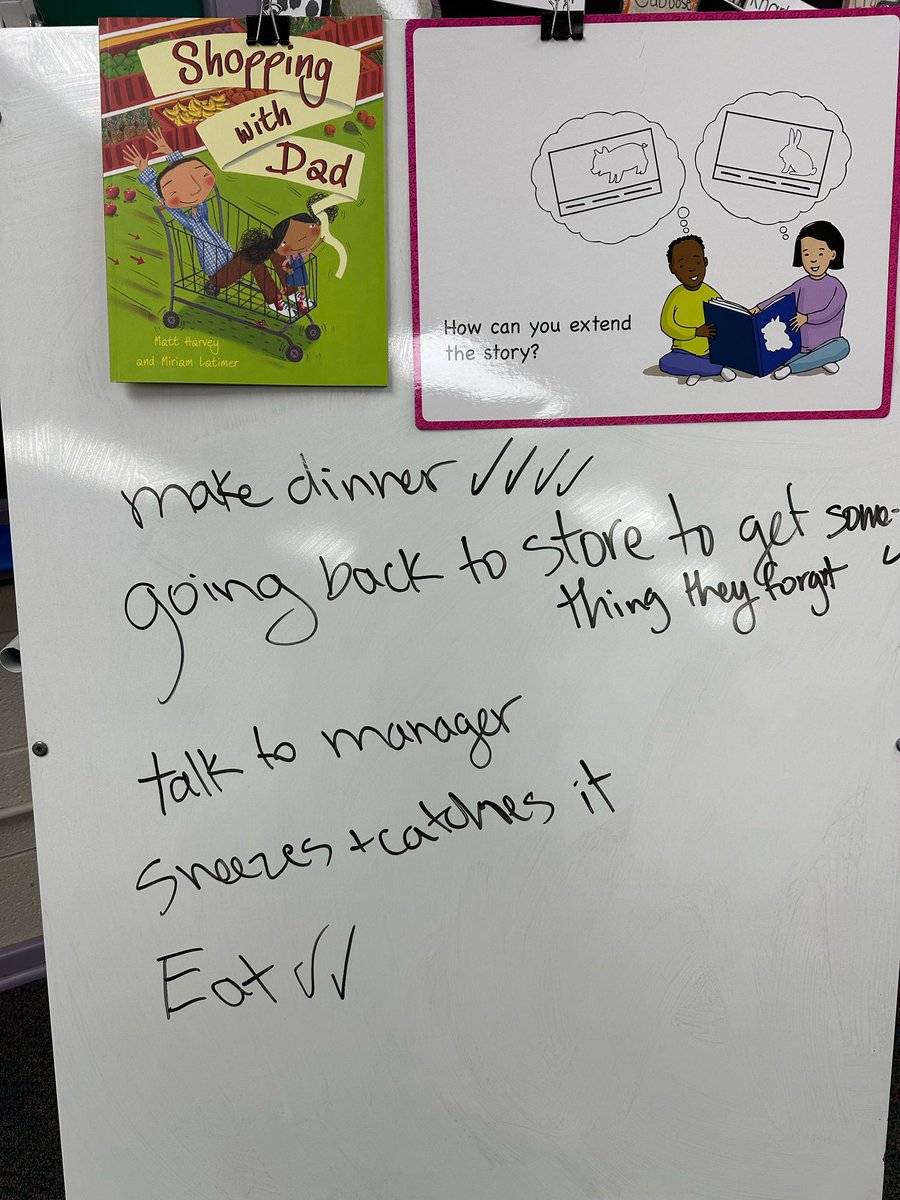 Shopping
with
Dad
Matt Harvey
and Miriam Latimer
How can you extend
the story?
make dinner ✓✓✓✓
going back to store to get some-
thing they forgot ✓
talk to manager
sneezes + catches it
Eat ✓✓